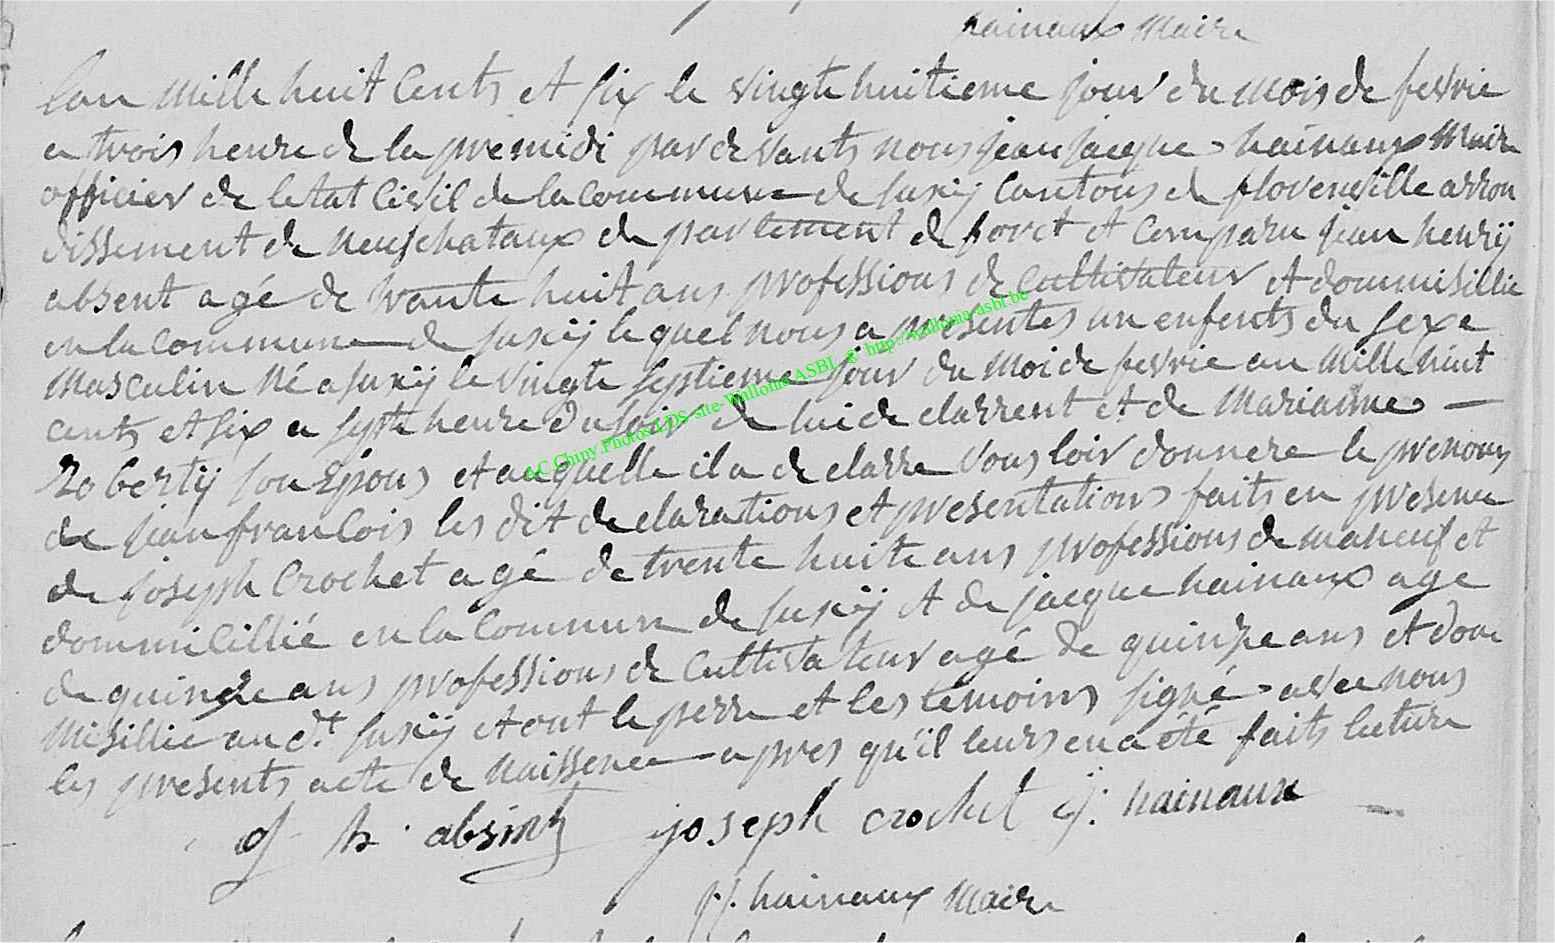 hainaux Maire
lan mille huit Cents et six le vingte huitieme jour du mois de fevrie
a trois heure de la premidi par de vants nous jean jacque hainaux Maire
officier de letat Civil de la commune de suxÿ Cantons de florenville arron
dissement de neufchataux de partement de foret et Comparu jean henrÿ
absent agé de trante huit ans professions de Cultivateur et dommisillie
en la commune de suxÿ le quel nous a presentes un enfents du sexe
masculin Né a suxÿ le vingte septieme jour du moi de fevrie an mille huit
cents et six a septe heure du soir de lui de clarrent et de Marianne
Robertÿ son Epous et auquelle il a de clarre vous loir donnere le prenoms
de jean francois les dit de clarations et presentations faits en presence
de joseph Crochet agé de trente huite ans professions de maneuf et
dommicillié en la Commune de suxÿ et de jacque hainaux age
de quinze ans professions de Cultivateur agé de quinze ans et dom
misillie au d.t suxÿ et ont le perre et les temoins signé avec nous
les presents acte de naissence apres qu'il leurs en a été faits lecture
j h absent joseph crochet j: hainaux
j j. hainaux Maire
A C Chiny Photos LDS site-Wallonia ASBL © http://wallonia-asbl.be